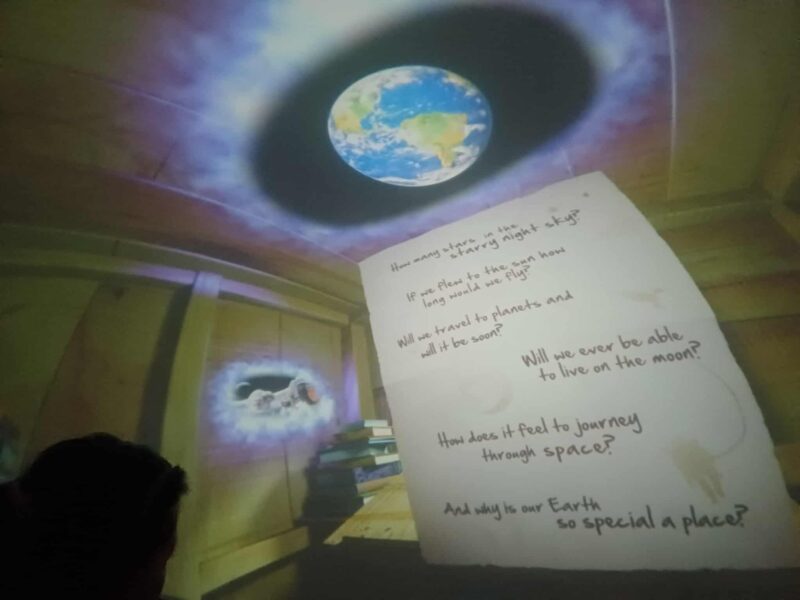 How many stars in the
starry night sky?
If we flew to the sun how
long would we fly?
Will we travel to planets and
will it be soon?
Will we ever be able
to live on the moon?
How does it feel to journey
through space?
And why is our Earth
so special a place?